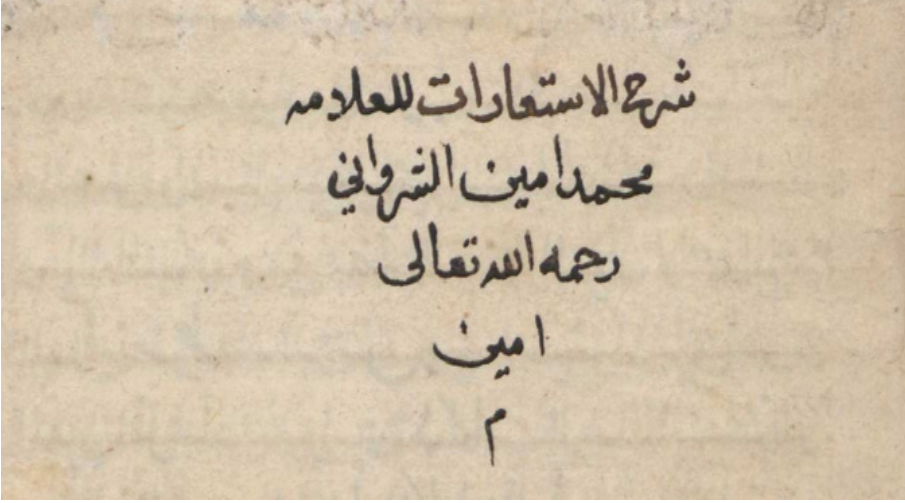 شرح الاستعارات للعلامه
محمد امين الشرواني
رحمه الله تعالى
امين
م